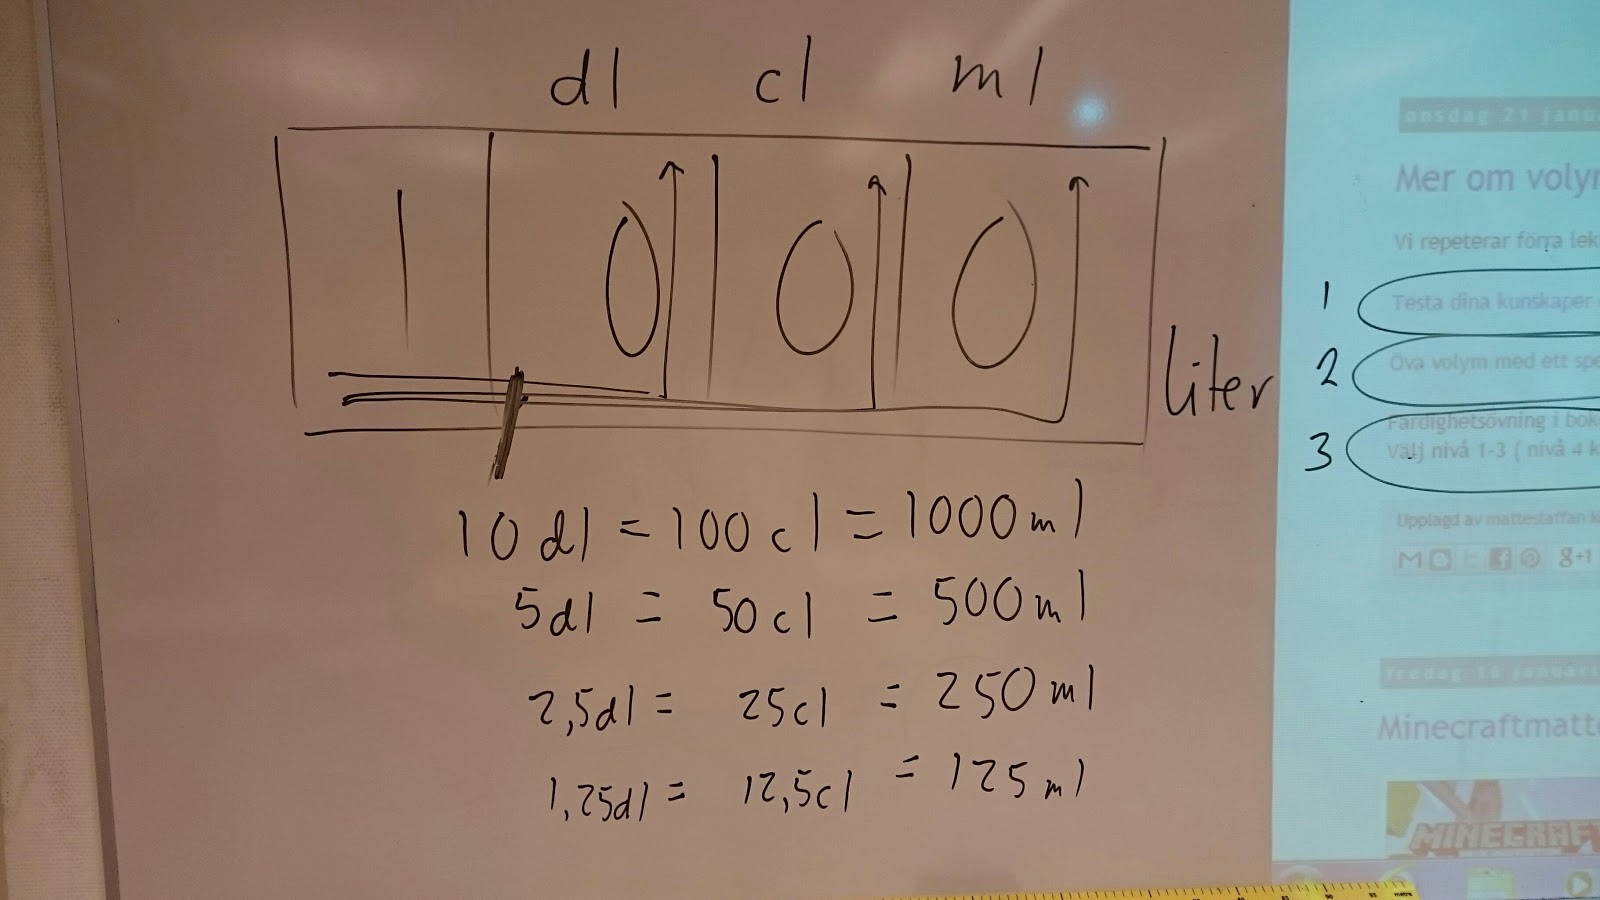 dl cl ml
1 0 0 0
liter
10 dl = 100 cl = 1000 ml
5 dl = 50 cl = 500 ml
2,5 dl = 25 cl = 250 ml
1,25 dl = 12,5 cl = 125 ml
onsdag 21 janu
Mer om volym
Vi repeterar förra lek
1 Testa dina kunskaper
2 Öva volym med ett spe
3 Färdighetsövning i bok
Välj nivå 1-3 ( nivå 4 k
Upplagd av mattestaffan k
g+1
fredag 16 januari
Minecraftmatte
MINECRAFT